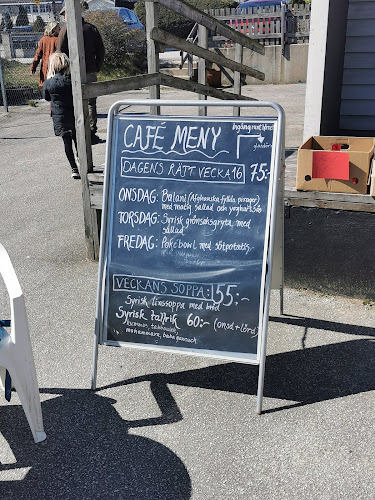 Ingång runt hörnet
CAFÉ MENY
DAGENS RÄTT VECKA 16 75:-
ONSDAG: Bolani (Afghanska fyllda piroger)
med matig sallad och yoghurtsås
TORSDAG: Syrisk grönsaksgryta, med
sallad
FREDAG: Pokébowl med sötpotatis,
VECKANS SOPPA: 55:-
Syrisk linssoppa med bröd
Syrisk tallrik 60:- (onsd + lörd)
hummus, tabbouleh,
mohammara, babaganoush